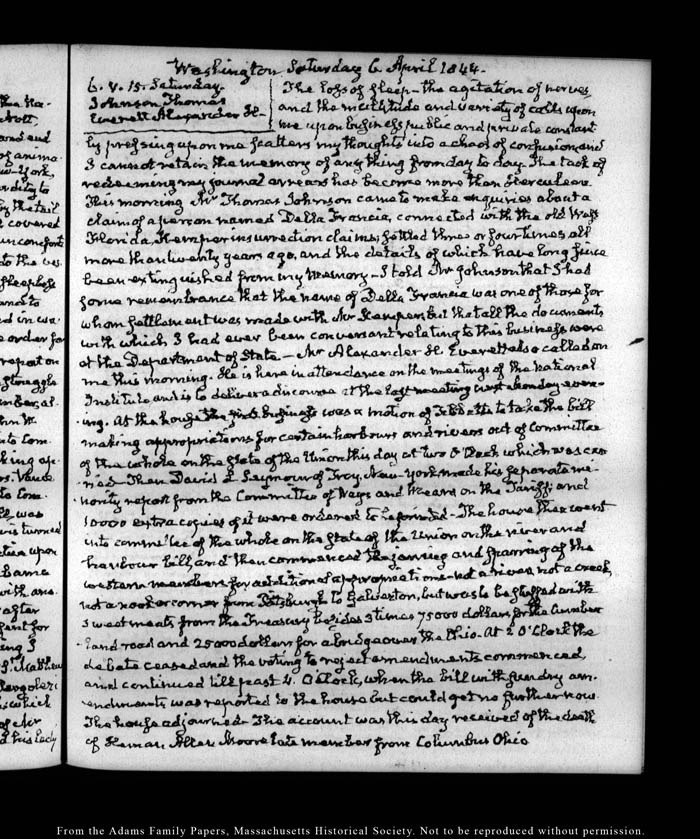 Washington Saturday 6 April 1844.
6. V. 15. Saturday
Johnson Thomas
Everett Alexander H-
The loss of sleep - the agitation of nerves
and the multitude and variety of calls upon
me upon business public and private constant
ly pressing upon me scatters my thoughts into a chaos of confusion, and
I cannot retain the memory of any thing from day to day. The task of
redeeming my journal arrears has become more than Herculean
This morning Mr Thomas Johnson came to make enquiries about a
claim of a person named Della Francia, connected with the old West
Florida, Kemper insurrection claims, settled three or four times, all
more than twenty years ago, and the details of which have long since
been extinguished from my memory - I told Mr Johnson that I had
some remembrance that the name of Della Francia was one of those for
whom settlement was made with Mr Kemper but that all the documents
with which I had ever been conversant relating to this business were
at the Department of State - Mr Alexander H. Everett also called on
me this morning. He is here in attendance on the meetings of the National
Institute and is to deliver a discourse at the last meeting next Monday even-
ing. At the house the first business was a motion of Tibbatts to take the bill
making appropriations for certain harbours and rivers out of Committee
of the whole on the state of the Union this day at two O'Clock which was car
ried - Then David L Seymour of Troy, New-York made his separate mi-
nority report from the Committee of Ways and Means on the Tariff; and
10000 extra copies of it were ordered to be printed - The house then went
into committee of the whole on the state of the Union on the river and
harbour bill, and then commenced the and of the
western members for additional appropriations - not a river, not a creek,
not a nook or corner from Pittsburgh to Galveston, but was to be stuffed with
sweetmeats from the Treasury besides 3 times 75000 dollars for the Cumber
land road and 25000 dollars for a bridge over the Ohio. At 2 O'Clock the
debate ceased and the voting to reject amendments commenced,
and continued till past 4. O'Clock, when the bill with sundry am-
endments was reported to the house but could get no further now.
The house adjourned - The account was this day received of the death
of Heman Allen Moore late member from Columbus Ohio
From the Adams Family Papers, Massachusetts Historical Society. Not to be reproduced without permission.